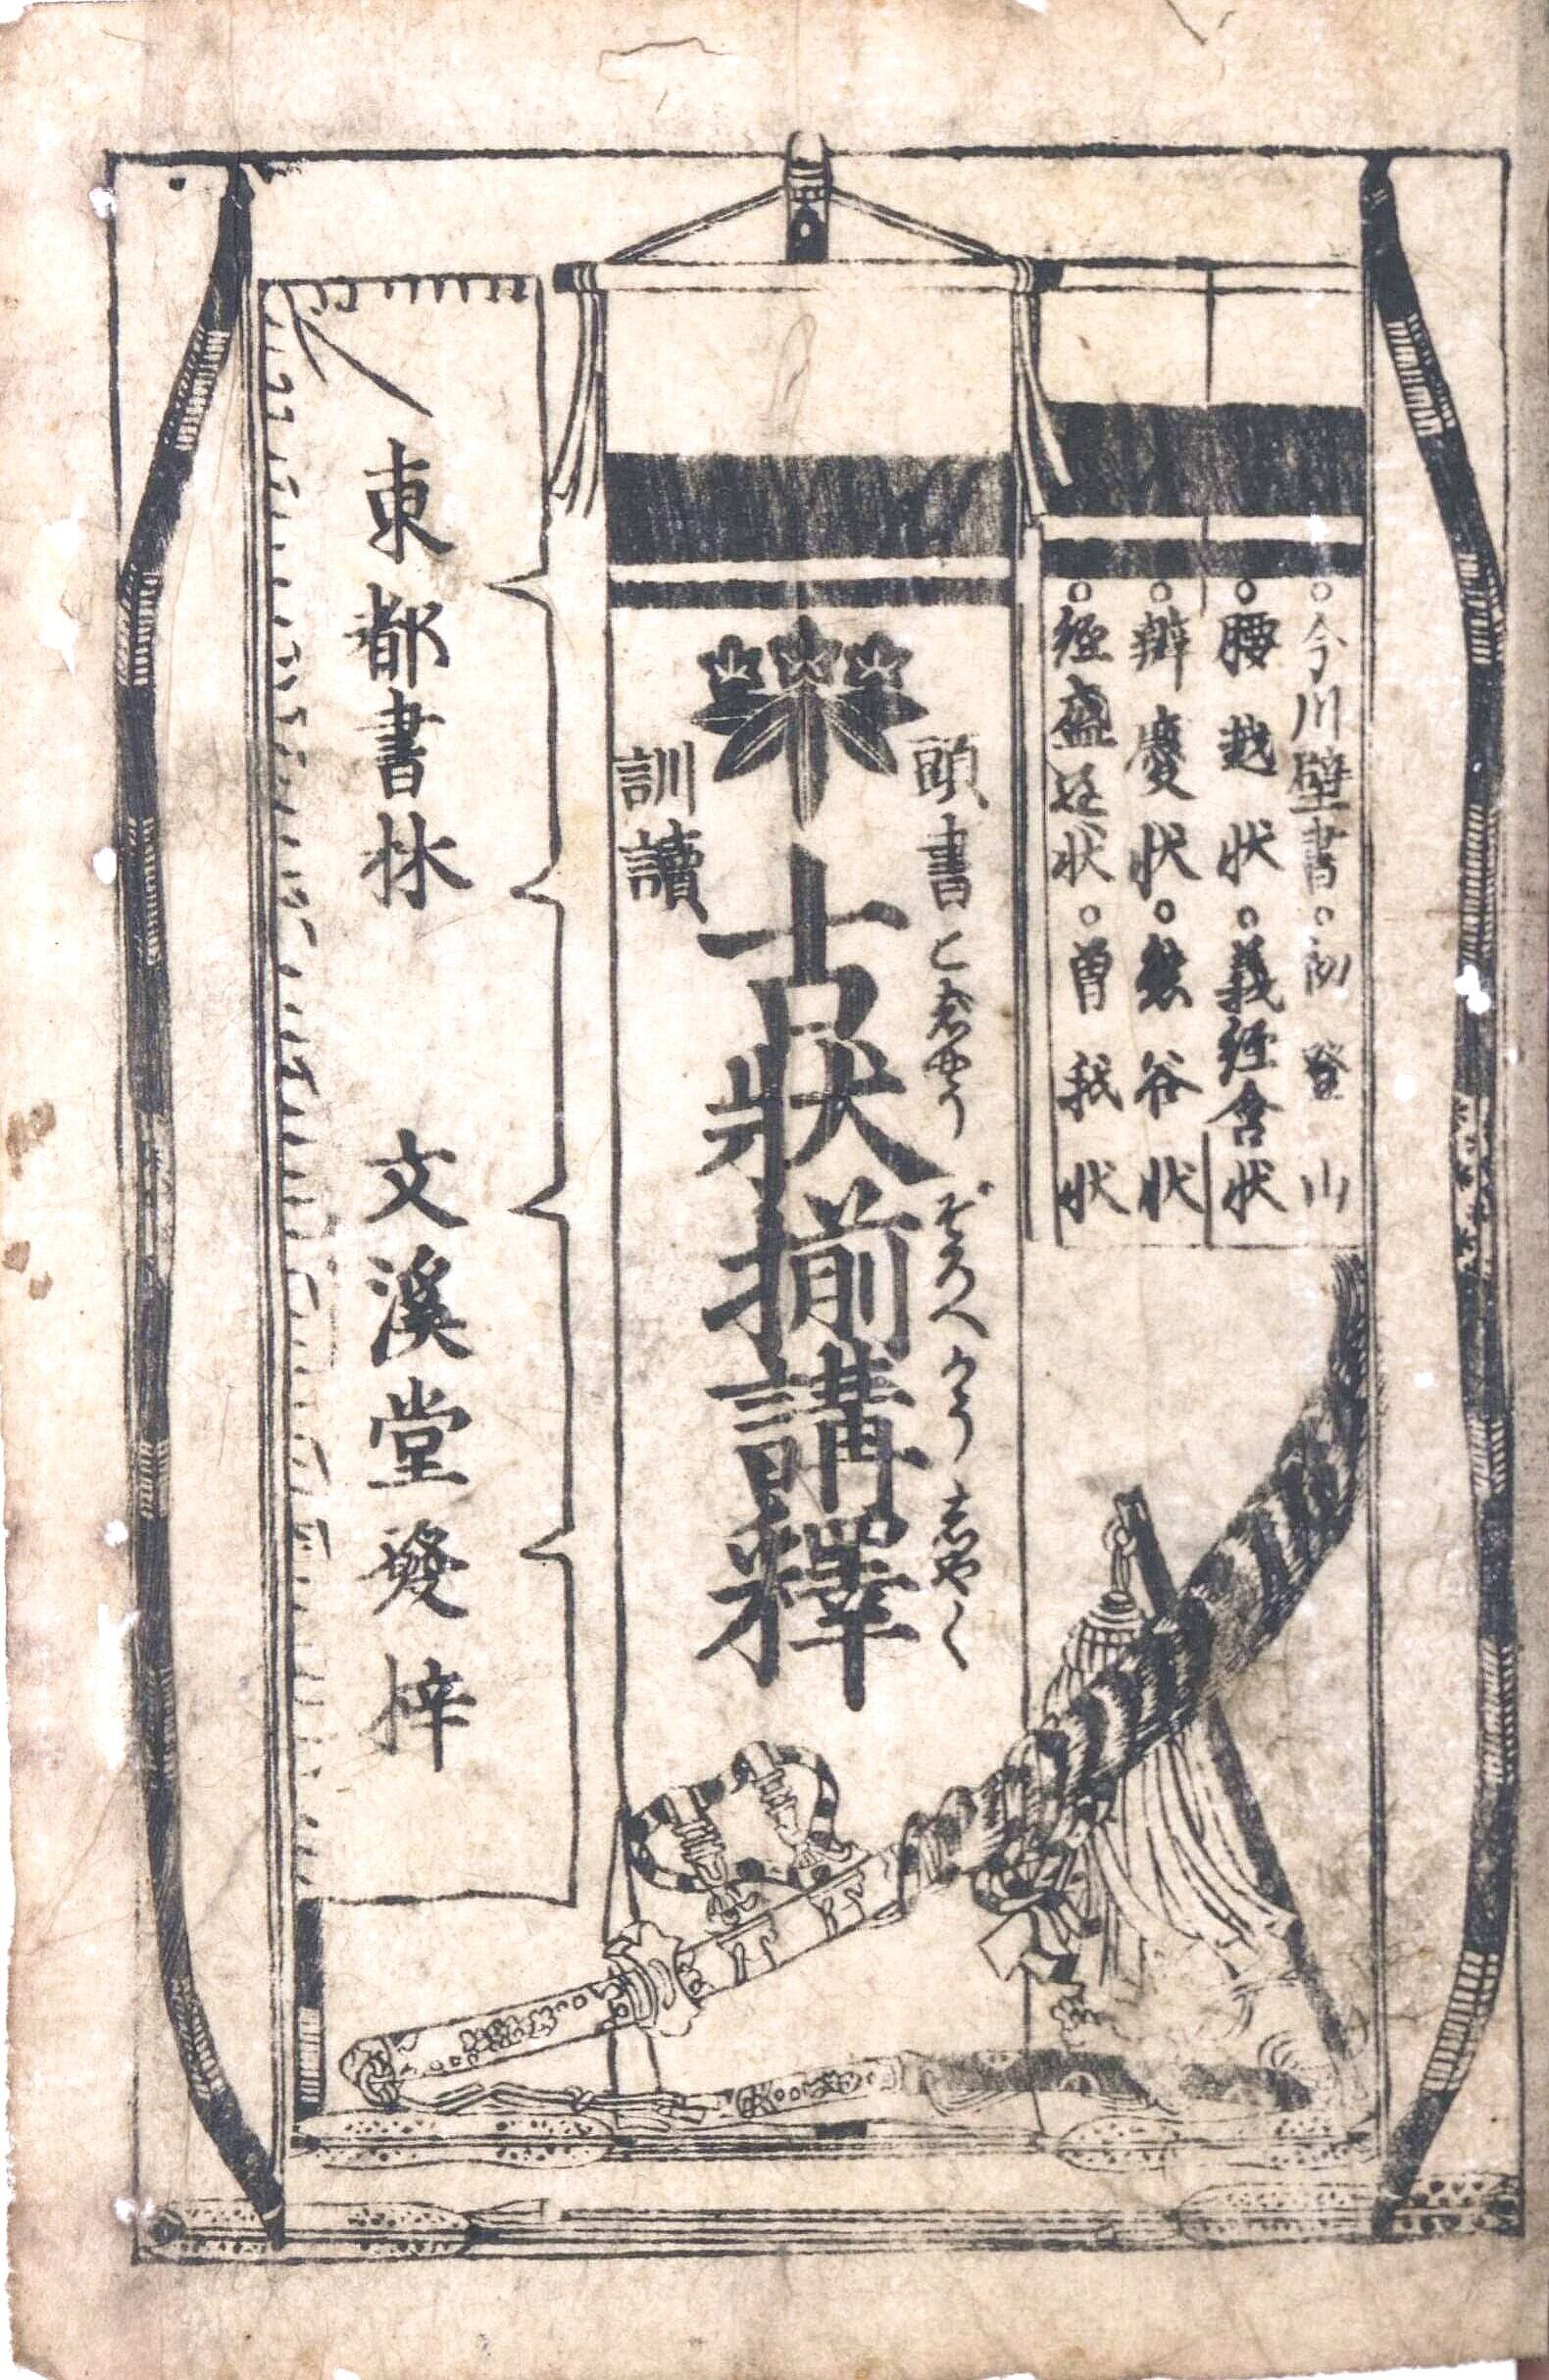 ○今川壁書○初登山
○腰越状○義経含状
○辨慶状○熊谷状
○経盛返状○曽我状
頭書
訓讀
古狀揃講釋
こじやうぞろへかうしやく
東都書林 文溪堂發梓